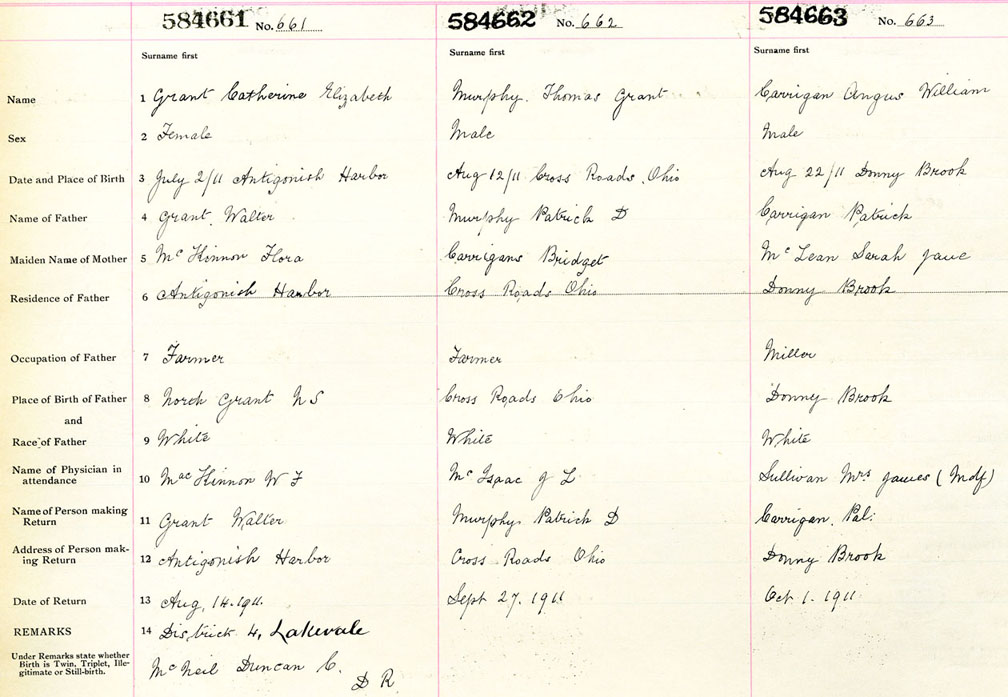 584661 No. 661 584662 No. 662 584663 No. 663
Surname first Surname first Surname first
Name 1 Grant Catherine Elizabeth Murphy. Thomas Grant Carrigan Angus William
Sex 2 Female Male Male
Date and Place of Birth 3 July 2/11 Antigonish Harbor Aug 12/11 Cross Roads, Ohio Aug 22/11 Donny Brook
Name of Father 4 Grant, Walter Murphy Patrick D Carrigan Patrick
Maiden Name of Mother 5 McKinnon Flora Carrigans Bridget McLean Sarah Jane
Residence of Father 6 Antigonish Harbor Cross Roads Ohio Donny Brook
Occupation of Father 7 Farmer Farmer Miller
Place of Birth of Father 8 North Grant N S Cross Roads Ohio Donny Brook
and
Race of Father 9 White White White
Name of Physician in attendance 10 MacKinnon W F McIsaac J L Sullivan Mrs James (Mdf)
Name of Person making Return 11 Grant Walter Murphy Patrick D Carrigan, Pat:
Address of Person mak-ing Return 12 Antigonish Harbor Cross Roads Ohio Donny Brook
Date of Return 13 Aug, 14.1911. Sept 27. 1911 Oct 1. 1911
REMARKS 14 District 4, Lakevale
Under Remarks state whether
Birth is Twin, Triplet, Ille-
gitimate or Still-birth.
McNeil Duncan C.
D R